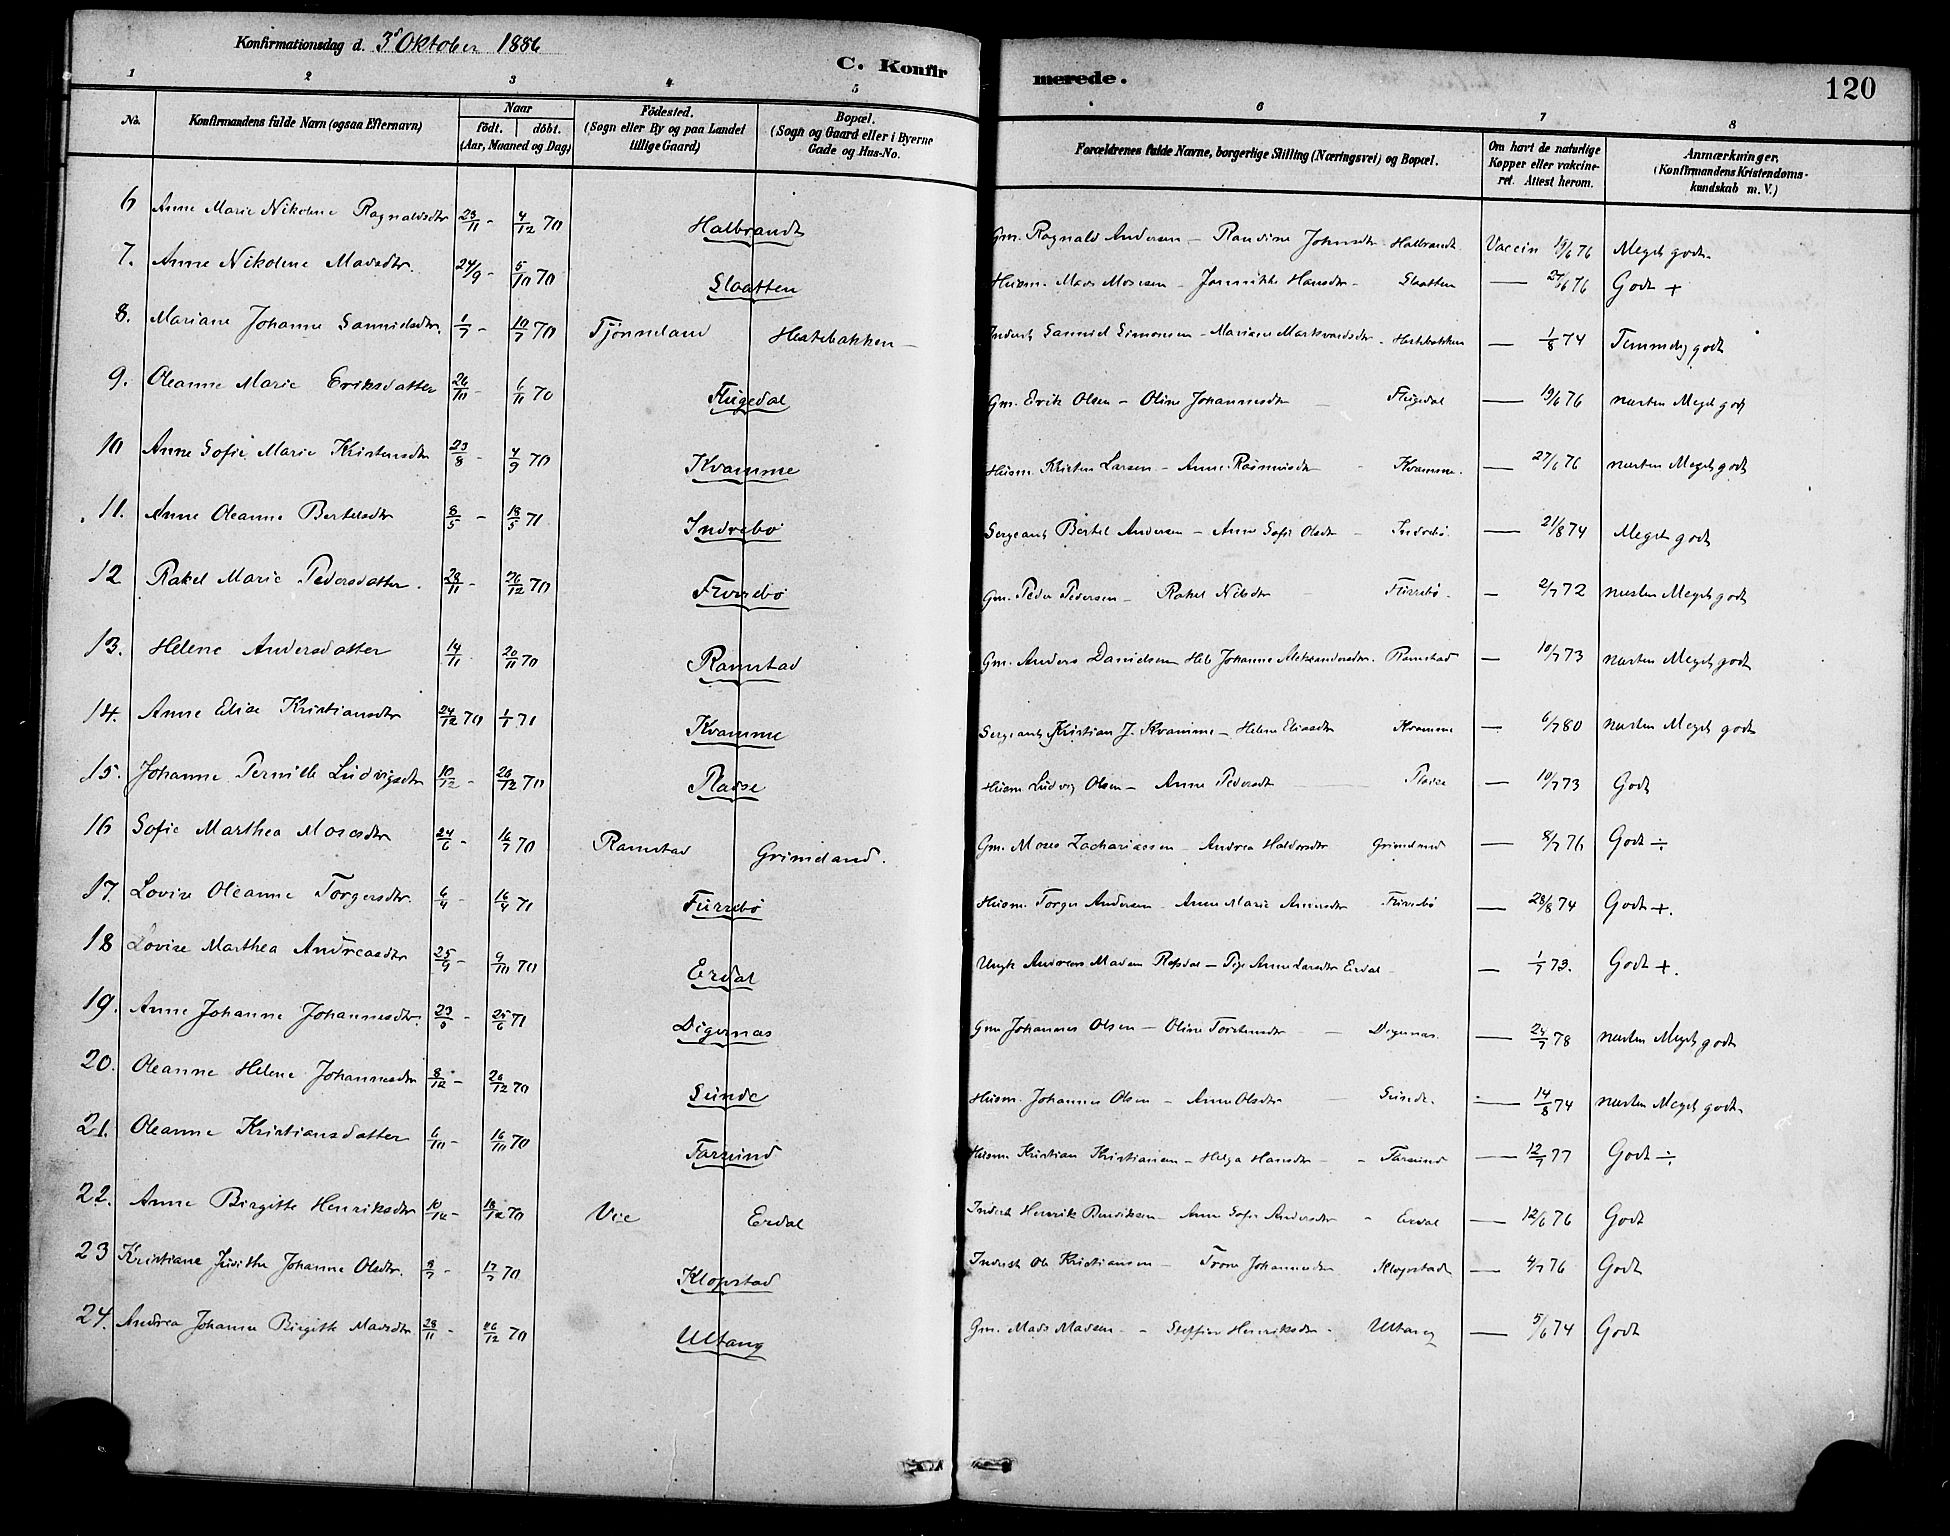 Konfirmationsdag d. 3 Oktober 1886
C. Konfirmerede. 120
1 2 3 4 5 6 7 8
No. Konfirmandens fulde Navn (ogsaa Efternavn) Naar födt. döbt. (Aar, Maaned og Dag) Födested. (Sogn eller By og paa Landet tillige Gaard) Bopæl. (Sogn og Gaard eller i Byerne Gade og Hus-No. Forældrenes fulde Navne, borgerlige Stilling (Næringsvei) og Bopæl. Om havt de naturlige Kopper eller vakcineret. Attest herom. Anmærkninger. (Konfirmandens Kristendomskundskab m. V.)
6 Anne Marie Nikoline Ragnaldsdtr 23/11 - 4/12 70 Halbrandt Gm. Ragnald Andersen - Randine Johnsdtr Halbrandt Vaccin 19/6 76 Meget godt.
7. Anne Nikoline Madsdtr. 24/9 - 5/10 70 Slaatten Husm. Mads Monsen - Jannikke Hansdtr - Slaatten — 27/6 76 Godt +
8. Mariane Johanne Samuelsdtr. 1/7 - 10/7 70 Tjönneland Hestebakken Inderst Samuel Simonsen - Mariane Markvardsdtr. Hestebakken — 1/8 74 Temmelig godt
9. Oleanne Marie Eriksdatter 26/10 - 6/11 70 Flugedal Gm. Erik Olsen - Oline Johannesdtr Flugedal — 19/6 76 næsten Meget godt
10 Anne Sofie Marie Kristensdtr 23/8 - 4/9 70 Kvamme Husm. Kristen Larsen - Anne Rasmusdtr - Kvamme. — 27/6 76 næsten Meget godt
11. Anne Oleanne Bertelsdtr 8/5 - 18/5 71 Indrebö Sergeant Bertel Andersen - Anne Sofie Olsdtr - Indrebö. — 21/8 74 Meget godt
12 Rakel Marie Pedersdatter. 28/11 - 26/12 70 Furrebö Gm. Peder Pedersen - Rakel Nilsdtr Furrebö. — 2/7 72 næsten Meget godt
13. Helene Andersdatter 14/11 20/11 70 Ramstad Gm. Anders Danielsen Johanne Aleksandersdtr. Ramstad — 10/7 73 næsten Meget godt
14. Anne Elise Kristiansdtr 24/12 70 1/1 71 Kvamme Sergeant Kristian J. Kvamme - Helene Eliasdtr Kvamme — 6/7 80 næsten Meget godt
15. Johanne Pernille Ludvigsdtr 10/12 - 26/12 70 Pladse Husm Ludvig Olsen - Anne Pedersdtr Pladse — 10/7 73 Godt
16 Sofie Marthea Mosesdtr 24/6 - 16/7 70 Ramstad Grimeland. Gm. Moses Zachariassen - Andrea Haldorsdtr Grimeland — 8/7 76 Godt ÷
17. Lovise Oleanne Torgersdtr. 6/4 - 16/4 71 Furrebö Husm. Torger Andersen - Anne Marie Furrebö — 28/8 74 Godt +.
18 Lovise Marthea Andreasdtr 25/9 - 9/10 70 Erdal Ungk Andreas Madsen - Pige Anne Larsdtr Erdal — 1/7 73. Godt +.
19. Anne Johanne Johannesdtr. 25/6 71 Digernæs Gm Johannes Olsen - Oline Torstensdtr - Digernæs. — 24/7 78 næsten Meget godt
20. Oleanne Helene Johannesdtr 8/12 - 26/12 70 Sunde Husm. Johannes Olsen - Anne Olsdtr Sunde. — 14/8 74 næsten Meget godt.
21. Oleanne Kristiansdatter 6/10 - 16/10 70 Farsund Husm Kristian Kristiansen - Helga Hansdtr - Farsund — 12/7 77 Godt ÷
22. Anne Birgitte Henriksdtr 10/12 - 18/12 70 Vie Erdal Inderst Henrik Bendiksen - Anne Sofie Andersdtr - Erdal — 12/6 76 Godt
23 Kristiane Judithe Johanne Olsdtr. 9/7 - 17/7 70 Klopstad Inderst Ole Kristiansen - Trone Johannesdtr Klopstad — 4/7 76 Godt
24. Andrea Johanne Birgitte Madsdtr 28/11 - 26/12 70 Ultang Gm. Mads Madsen - Henriksdtr - Ultang — 5/6 74 Godt